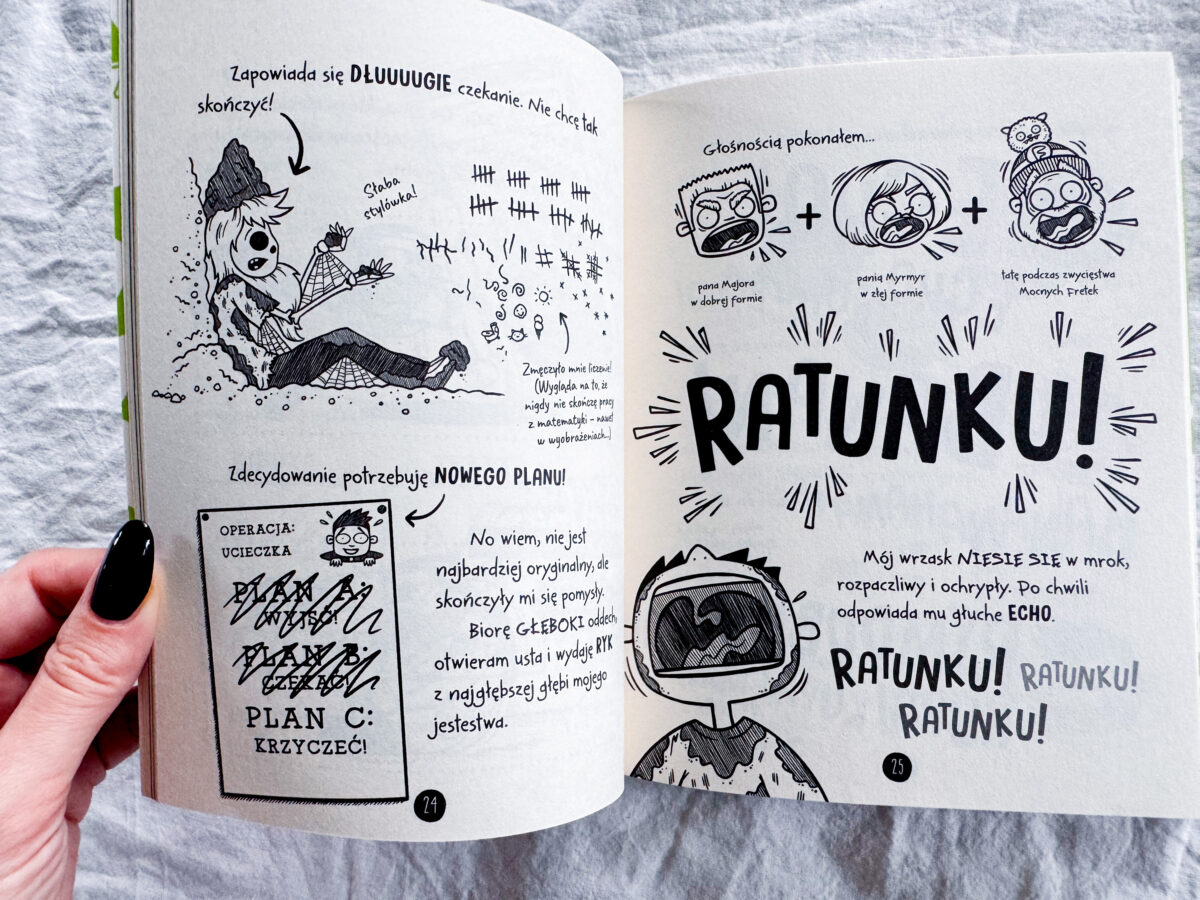 Zapowiada się DŁUUUUGIE czekanie. Nie chcę tak
skończyć!
Słaba
stylówka!
Zmęczyło mnie liczenie!
(Wygląda na to, że
nigdy nie skończę pracy
z matematyki – nawet
w wyobrażeniach...)
Zdecydowanie potrzebuję NOWEGO PLANU!
OPERACJA:
UCIECZKA
PLAN A:
WYJŚĆ!
PLAN B:
CZEKAĆ!
PLAN C:
KRZYCZEĆ!
No wiem, nie jest
najbardziej oryginalny, ale
skończyły mi się pomysły.
Biorę GŁĘBOKI oddech,
otwieram usta i wydaję RYK
z najgłębszej głębi mojego
jestestwa.
24
Głośnością pokonałem...
+ +
pana Majora
w dobrej formie
panią Myrmyr
w złej formie
tatę podczas zwycięstwa
Mocnych Fretek
RATUNKU!
Mój wrzask NIESIE SIĘ w mrok,
rozpaczliwy i ochrypły. Po chwili
odpowiada mu głuche ECHO.
RATUNKU! RATUNKU!
RATUNKU!
25